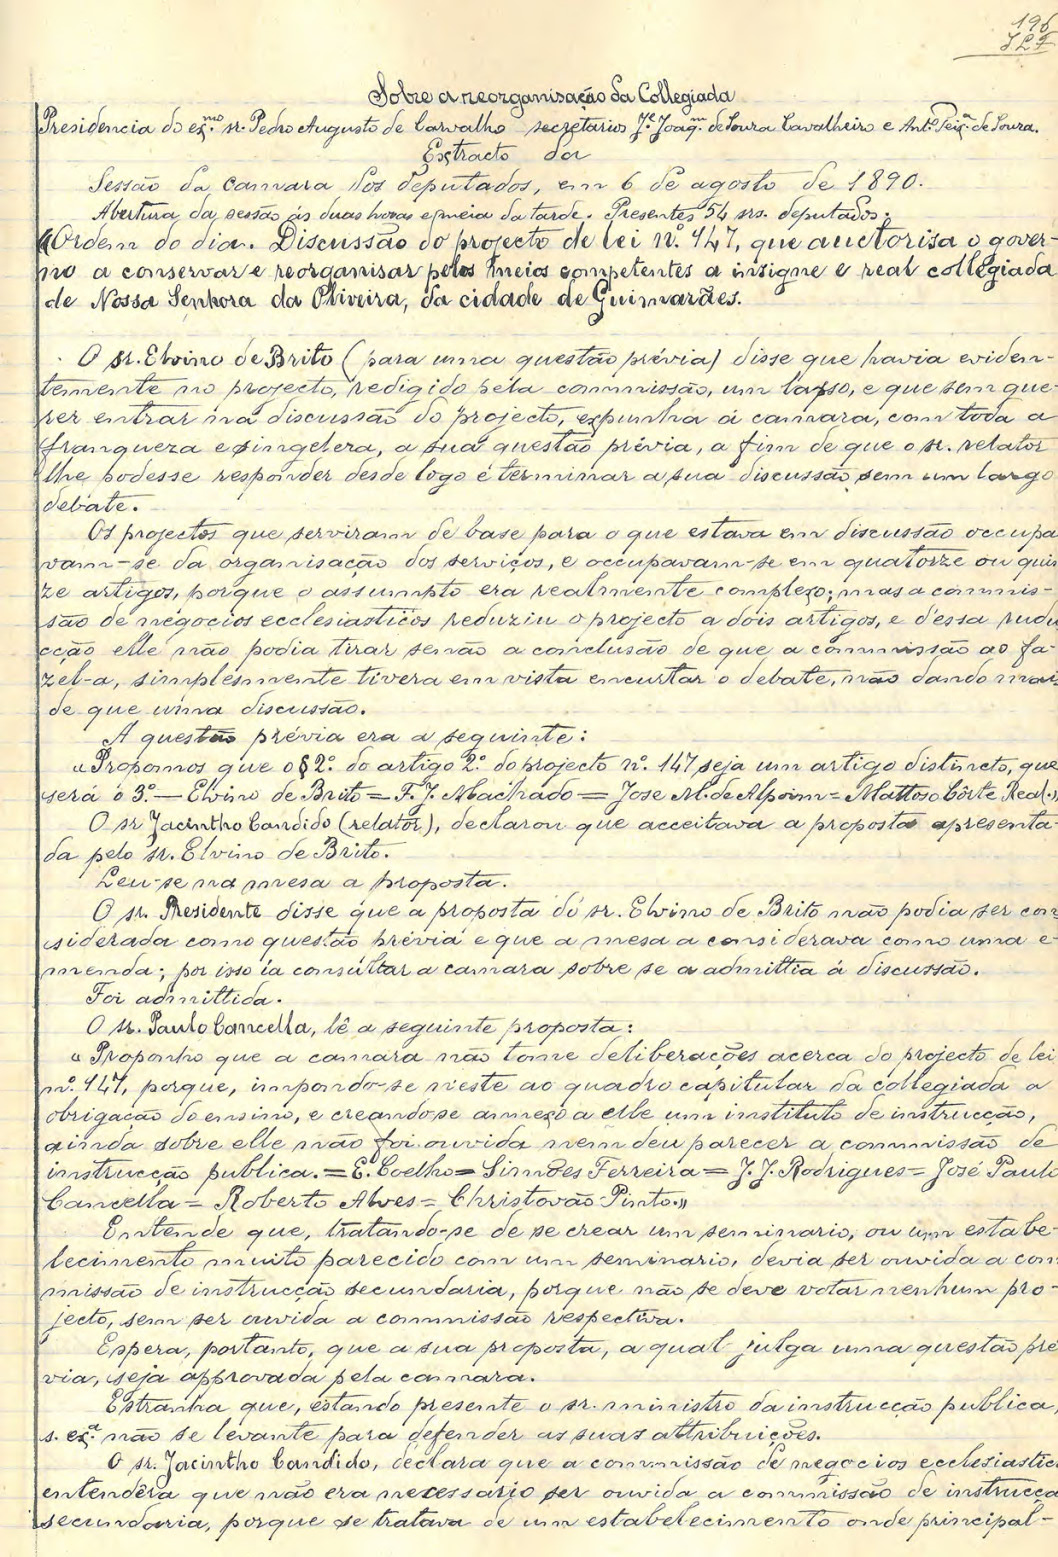 196
Sobre a reorganisação da Collegiada
Presidencia do ex.mo sr. Pedro Augusto de Carvalho secretarios J.e Joaq.m de Souza Cavalheiro e Ant.o Teix.a de Souza.
Extracto da
Sessão da camara dos deputados, em 6 de agosto de 1890.
Abertura da sessão ás duas horas e meia da tarde. Presentes 54 srs. deputados.
«Ordem do dia. Discussão do projecto de lei n.º 147, que auctorisa o gover-
no a conservar e reorganisar pelos meios competentes a insigne e real collegiada
de Nossa Senhora da Oliveira, da cidade de Guimarães.
O sr. Elvino de Brito (para uma questão prévia) disse que havia eviden-
temente no projecto, redigido pela commissão, um lapso, e que sem que-
rer entrar na discussão do projecto, expunha á camara, com toda a
franqueza e singeleza, a sua questão prévia, a fim de que o sr. relator
lhe podesse responder desde logo e terminar a sua discussão sem um largo
debate.
Os projectos que serviram de base para o que estava em discussão occupa
vam-se da organisação dos serviços, e occupavam-se em quatorze ou quin
ze artigos, porque o assumpto era realmente complexo; mas a commis-
são de negocios ecclesiasticos reduziu o projecto a dois artigos, e d'essa redu
cção elle não podia tirar senão a conclusão de que a commissão ao fa-
zel-a, simplesmente tivera em vista encurtar o debate, não dando mais
de que uma discussão.
A questão prévia era a seguinte:
«Propomos que o § 2.º do artigo 2.º do projecto n.º 147 seja um artigo distincto, que
será o 3.º — Elvino de Brito = F. J. Machado = José M. de Alpoim = Mattoso Côrte Real.»
O sr Jacintho Candido (relator), declarou que acceitava a proposta apresenta-
da pelo sr. Elvino de Brito.
Leu-se na mesa a proposta.
O sr. Presidente disse que a proposta do sr. Elvino de Brito não podia ser con
siderada como questão prévia e que a mesa a considerava como uma e-
menda; por isso ia consultar a camara sobre se a admittia á discussão.
Foi admittida.
O sr. Paulo Cancella, lê a seguinte proposta:
« Proponho que a camara não tome deliberações acerca do projecto de lei
n.º 147, porque, impondo-se n'este ao quadro capitular da collegiada a
obrigação do ensino, e creando-se annexo a elle um instituto de instrucção,
ainda sobre elle não foi ouvida nem deu parecer a commissão de
instrucção publica. = E. Coelho = Simões Ferreira = J. J. Rodrigues = José Paulo
Cancella = Roberto Alves = Christovão Pinto.»
Entende que, tratando-se de se crear um seminario, ou um estabe-
lecimento muito parecido com um seminario, devia ser ouvida a com
missão de instrucção secundaria, porque não se deve votar nenhum pro-
jecto, sem ser ouvida a commissão respectiva.
Espera, portanto, que a sua proposta, a qual julga uma questão pré
via, seja approvada pela camara.
Estranha que, estando presente o sr. ministro da instrucção publica,
s. ex.a não se levante para defender as suas attribuições.
O sr. Jacintho Candido, declara que a commissão de negocios ecclesiastic
entendêra que não era necessario ser ouvida a commissão de instrucçã
secundaria, porque se tratava de um estabelecimento onde principal-